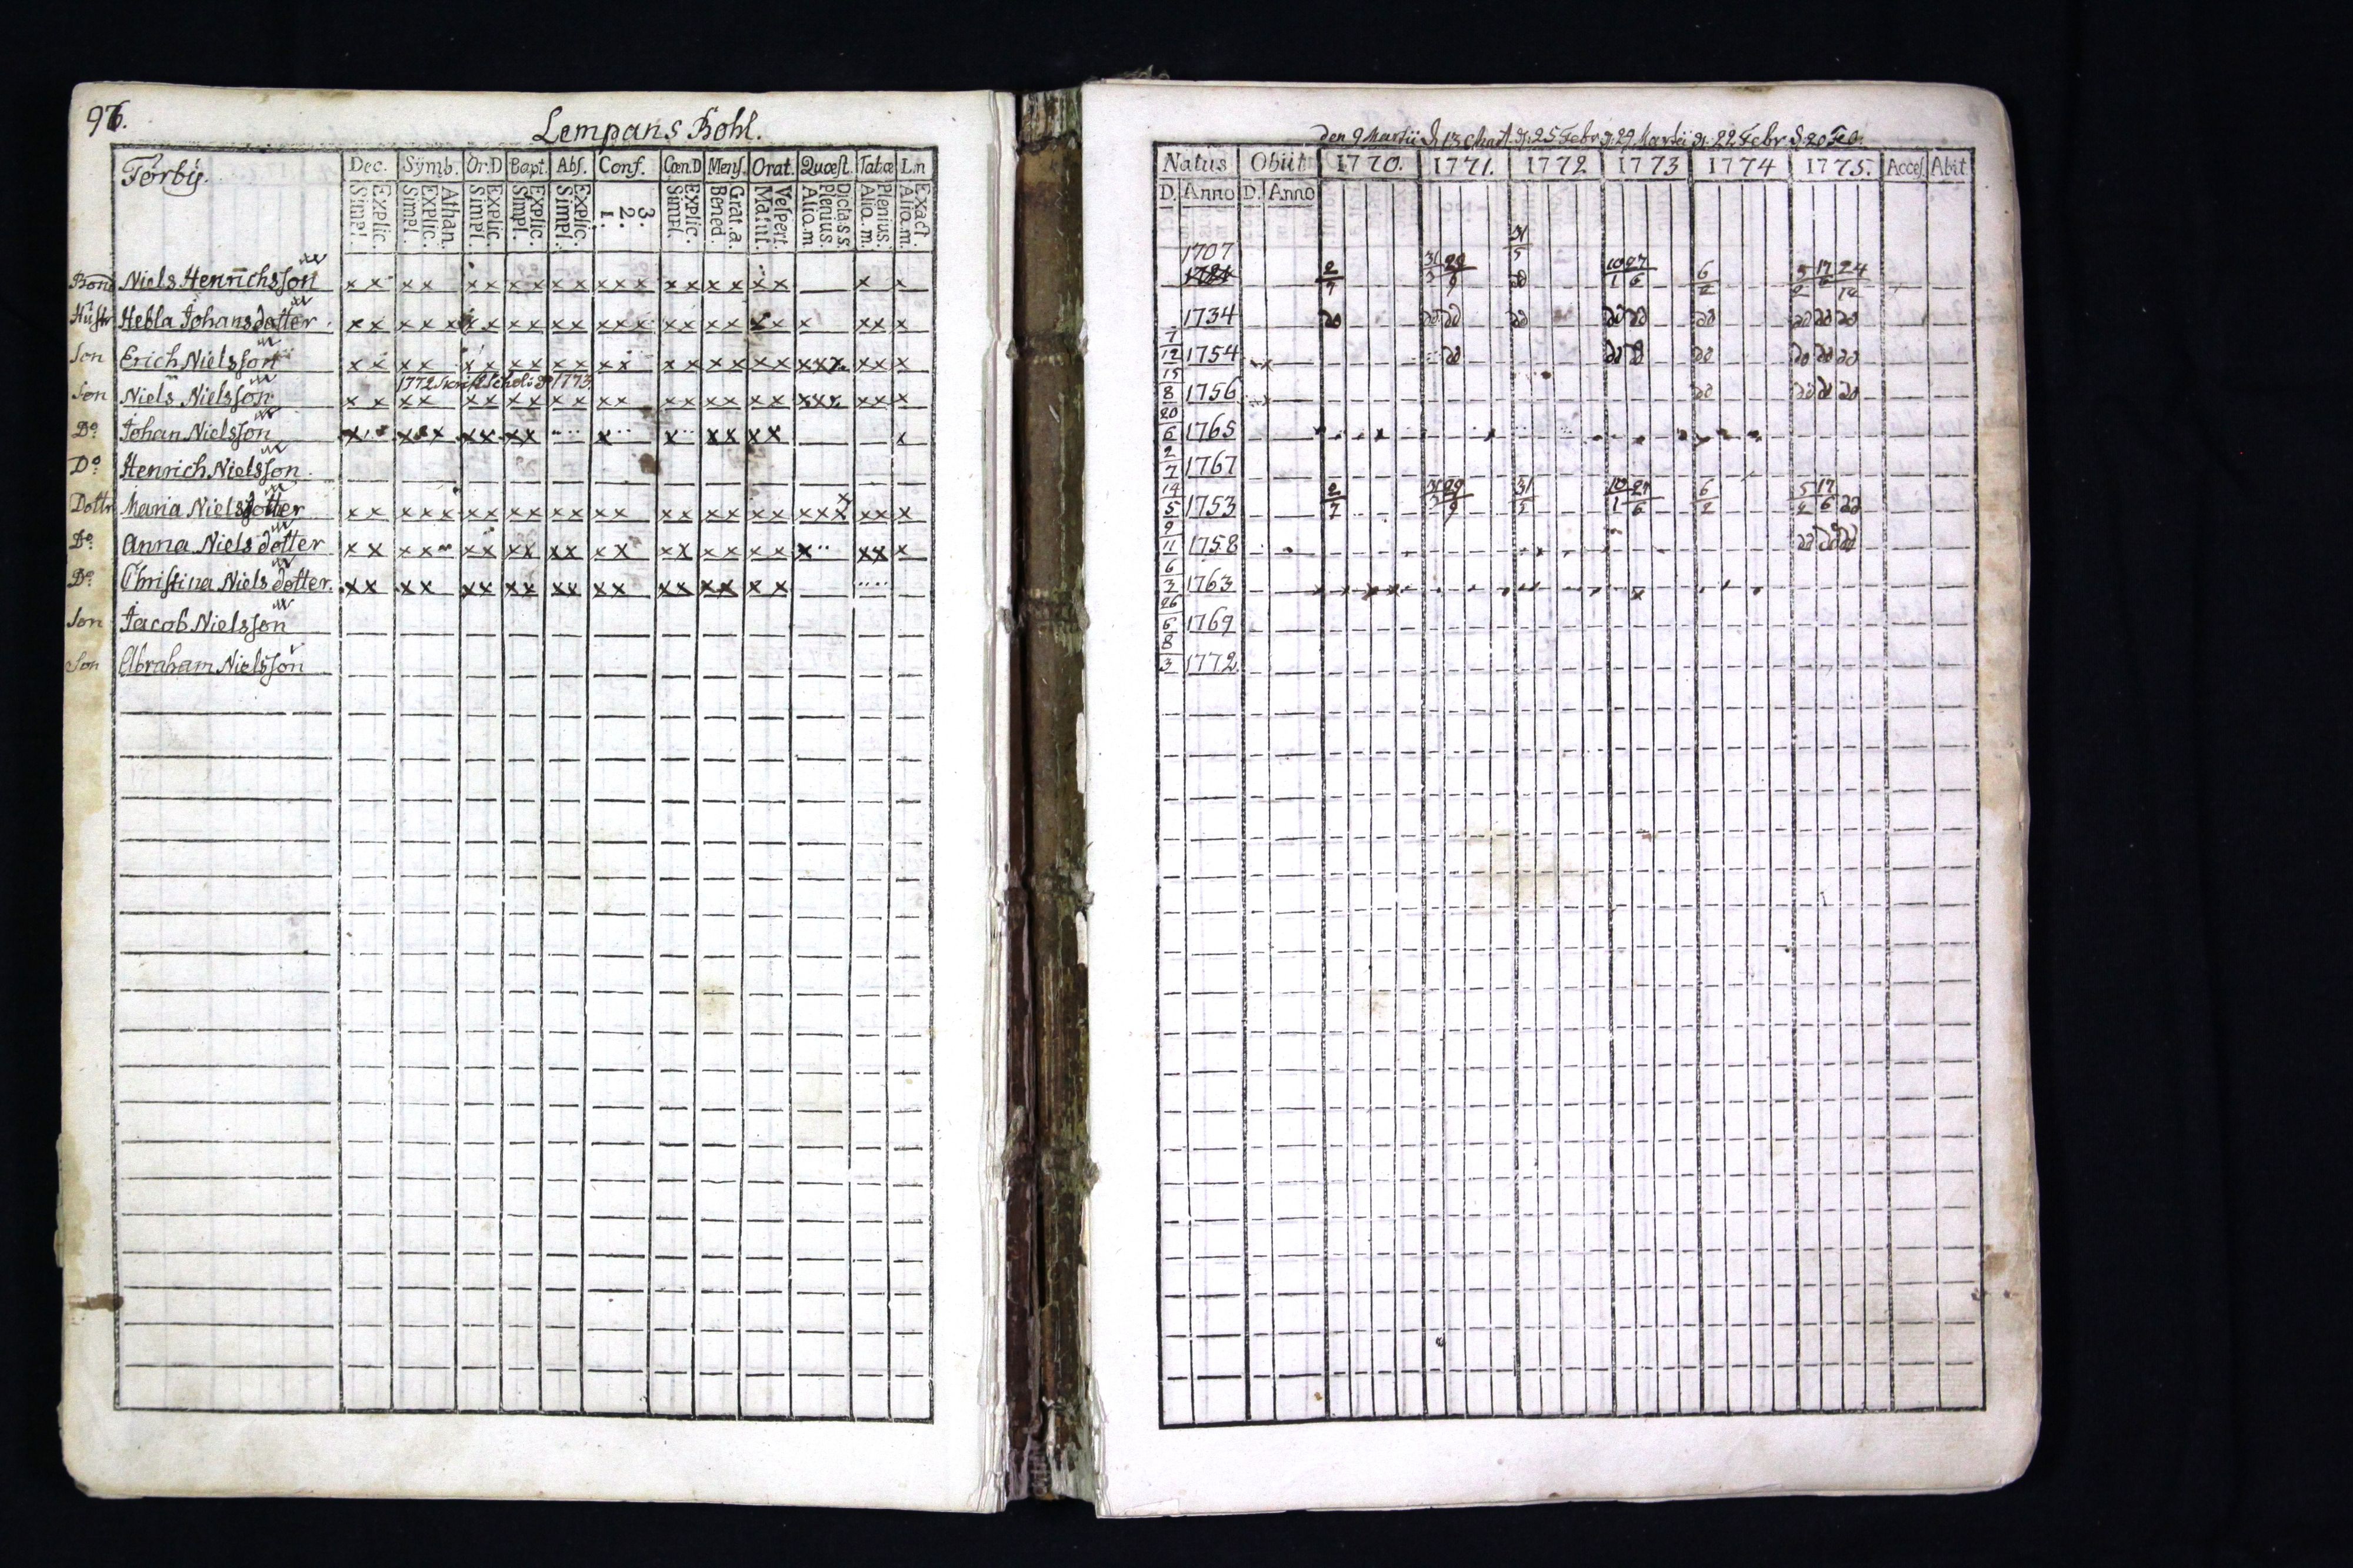 96.
Lempans Bohl.
Torby.
Dec. Symb. Or.D Bapt. Abs. Conf. Cœn.D Mens. Orat. Quæst. Tabæ L.n
Simpl. Explic. Simpl. Explic. Athan. Simpl. Explic. Simpl. Explic. Simpl. Explic. 1. 2. 3. Simpl. Explic. Bened. Grat.a. Matut. Vespert. Alio.m Plenius. Dicta s.s. Alio.m. Plenius. Alio.m. Exact.
Bond Niels Henrichsson x x x x x x x x x x x x x x x x x x x x x
Hustr Hebla Johansdotter. x x x x x x x x x x x x x x x x x x x x x x x x
Son Erich Nielsson x x x x x x x x x x x x x x x x x x x x x x x x
1772 1773
Son Niels Nielsson x x x x x x x x x x x x x x x x x x x x x x x x
Do. Johan Nielsson x x x x x x x x x x x x x x x x
Do. Henrich Nielsson.
Dottr Maria Nielsdotter x x x x x x x x x x x x x x x x x x x x x x x x x
Do. Anna Nielsdotter x x x x x x x x x x x x x x x x x x x x x x
Do. Christina Nielsdotter. x x x x x x x x x x x x x x x x x x
Son Jacob Nielsson
Son Abraham Nielsson
den 9 Martii d. 13 Mart. d. 25 Febr. d. 29 Martii d. 22 Febr d. 20 Feb.
Natus Obiit 1770. 1771. 1772 1773 1774 1775. Acces. Abiit
D. Anno D. Anno
1707
2/7 31/3 29/9 31/5 do 10/1 27/6 6/2 5/2 17/6 24/12
1734 do do do do do do do do do do
7/12 1754 do do do do do do do
15/8 1756 do do do do
20/6 1765
2/7 1767
14/5 1753 2/7 31/3 29/9 31/5 10/1 27/6 6/2 5/2 17/6 do
9/11 1758 do do do
6/3 1763
26/6 1769
8/3 1772